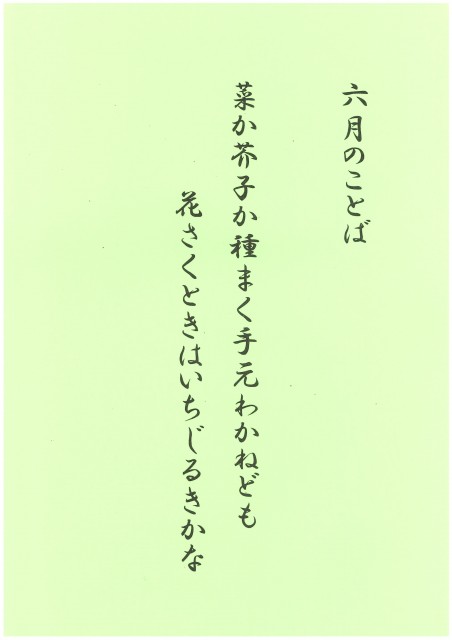 六月のことば
菜か芥子か種まく手元わかねども
花さくときはいちじるきかな